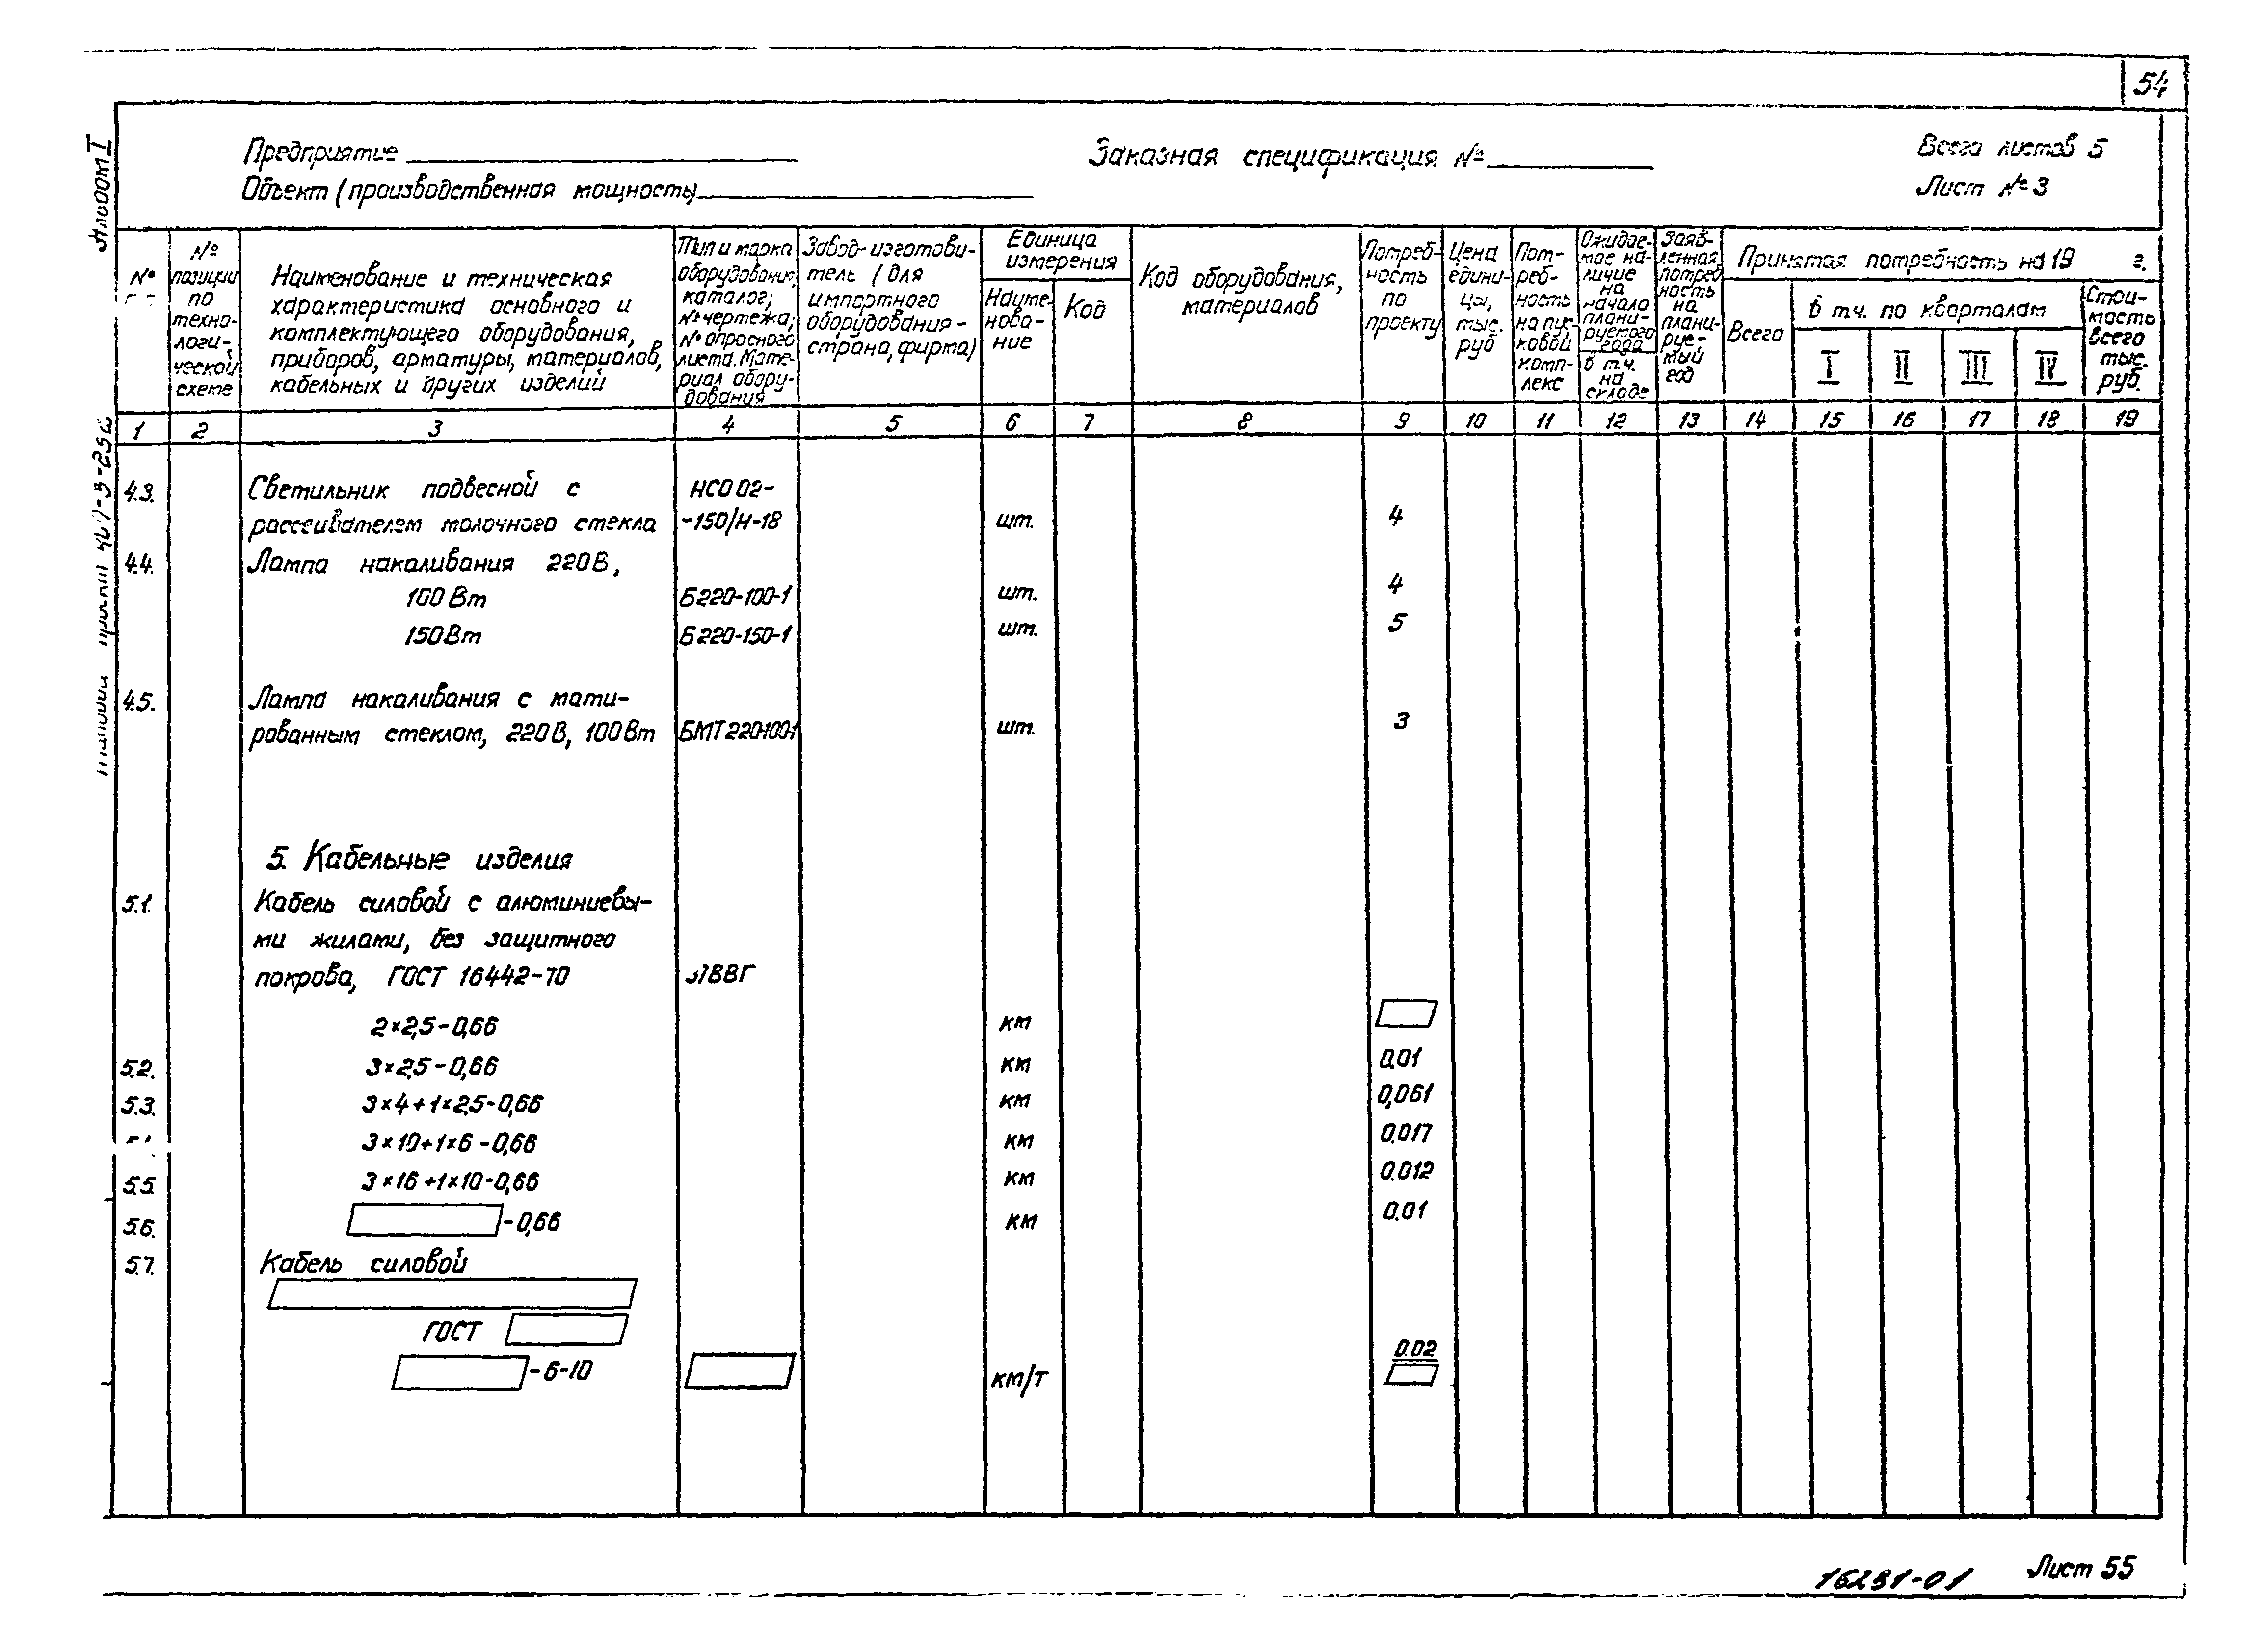 54
Альбом I
Предприятие
Заказная спецификация №
Всего листов 5
Объект (производственная мощность)
Лист №3
№
№ позиции по техно-логи-ческой схеме
Наименование и техническая
характеристика основного и
комплектующего оборудования,
приборов, арматуры, материалов,
кабельных и других изделий
Тип и марка
оборудования,
каталог,
№ чертежа,
№ опросного
листа. Мате-
риал обору-
дования
Завод-изготови-
тель (для
импортного
оборудования -
страна, фирма)
Единица
измерения
Наиме-
нова-
ние
Код
Код оборудования,
материалов
Потреб-
ность
по
проекту
Цена
едини-
цы,
тыс.
руб
Пот-
реб-
ность
на пус-
ковой
комп-
лекс
Ожидае-
мое на-
личие
на
начало
плани-
руемого
года
в т.ч.
на
складе
Заяв-
ленная
потреб
ность
на
плани-
руе-
мый
год
Принятая потребность на 19 г.
Всего
в т.ч. по кварталам
I II III IV
Стои-
мость
всего
тыс.
руб.
1 2 3 4 5 6 7 8 9 10 11 12 13 14 15 16 17 18 19
4.3. Светильник подвесной с НСО 02-
рассеивателем молочного стекла -150/Н-18 шт. 4
4.4. Лампа накаливания 220В,
100 Вт Б220-100-1 шт. 4
150Вт Б220-150-1 шт. 5
4.5. Лампа накаливания с мати-
рованным стеклом, 220В, 100Вт БМТ220-100-1 шт. 3
5. Кабельные изделия
5.1. Кабель силовой с алюминиевы-
ми жилами, без защитного
покрова, ГОСТ 16442-70 АВВГ
2×2,5-0,66 км
5.2. 3×2,5-0,66 км 0.01
5.3. 3×4+1×2,5-0,66 км 0,061
3×10+1×6-0,66 км 0.017
5.5. 3×16+1×10-0,66 км 0.012
5.6. -0,66 км 0.01
5.7. Кабель силовой
ГОСТ
0.02
-6-10 км/т
16231-01
Лист 55